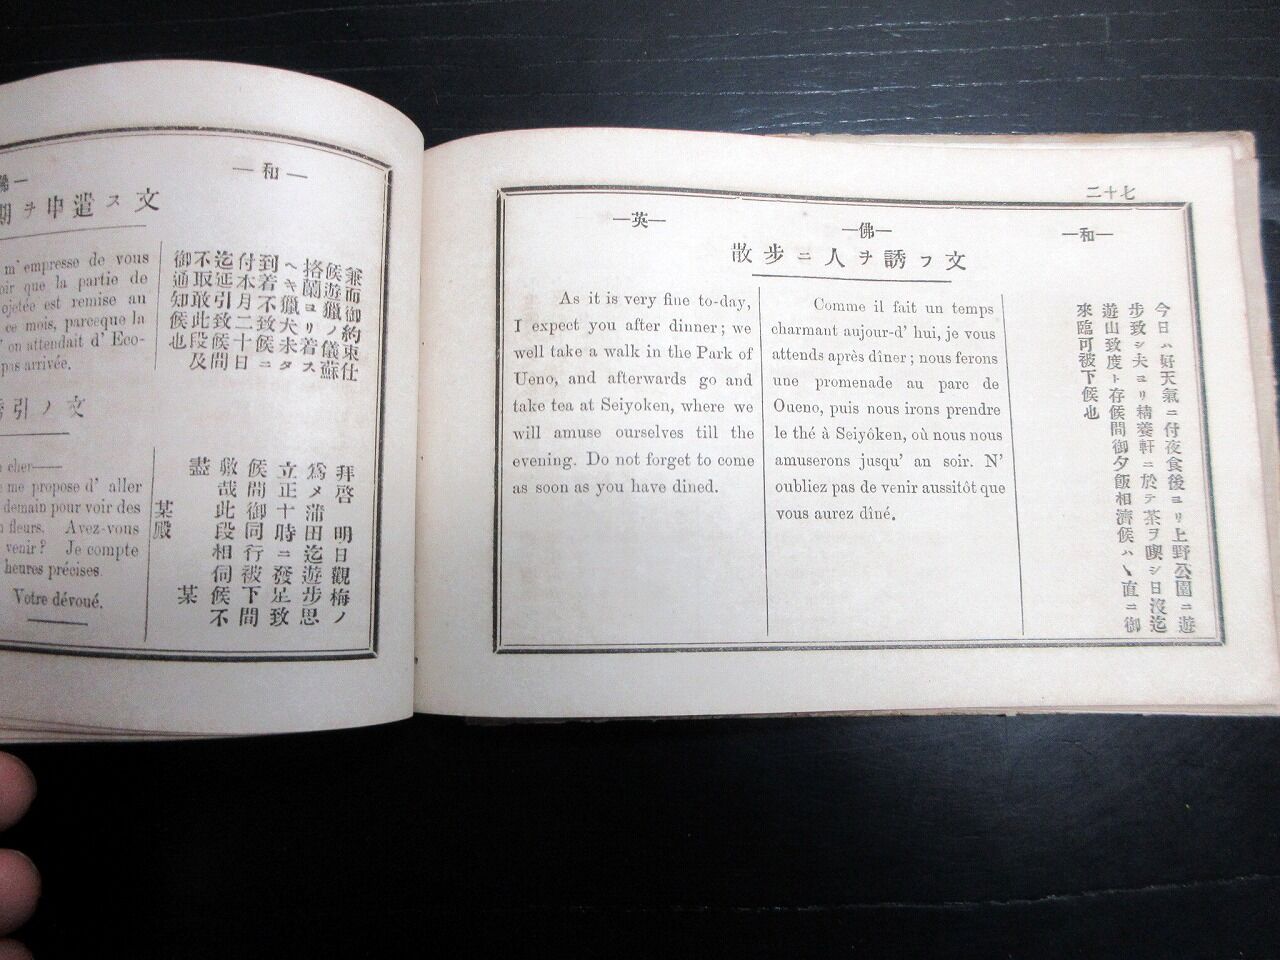 佛—
—和—
期ヲ申遣ス文
m' empresse de vous
oir que la partie de
ojetée est remise au
ce mois, parceque la
' on attendait d' Eco-
pas arrivée.
兼而御約束仕
候遊獵ノ儀蘇
挌蘭ヨリ着ス
ヘキ獵犬未タ
到着不致候ニ
付本月二十日
迄延引致候間
不取敢此段及
御通知候也
誘引ノ文
n cher——
me propose d' aller
demain pour voir des
n fleurs. Avez-vous
venir? Je compte
heures précises.
Votre dévoué.
拜啓 明日觀梅ノ
爲メ蒲田迄遊步思
立正十時ニ發足致
候間御同行被下間
敷哉此段相伺候不
盡
某
某殿
二十七
—英—
—佛—
—和—
散步ニ人ヲ誘フ文
As it is very fine to-day,
I expect you after dinner; we
well take a walk in the Park of
Ueno, and afterwards go and
take tea at Seiyoken, where we
will amuse ourselves till the
evening. Do not forget to come
as soon as you have dined.
Comme il fait un temps
charmant aujour-d' hui, je vous
attends après dîner; nous ferons
une promenade au parc de
Oueno, puis nous irons prendre
le thé à Seiyôken, où nous nous
amuserons jusqu' an soir. N'
oubliez pas de venir aussitôt que
vous aurez dîné.
今日ハ好天氣ニ付夜食後ヨリ上野公園ニ遊
步致シ夫ヨリ精養軒ニ於テ茶ヲ喫シ日沒迄
遊山致度ト存候間御夕飯相濟候ハヽ直ニ御
來臨可被下候也